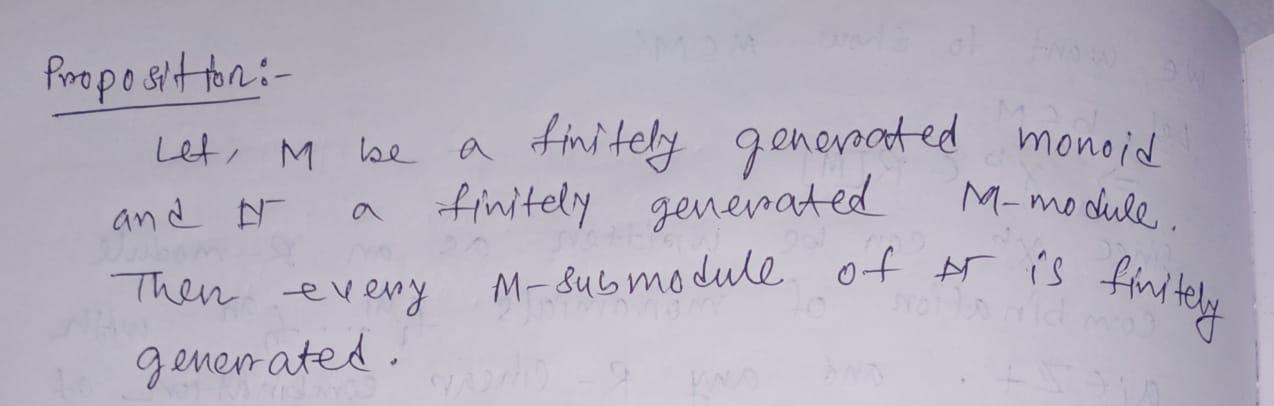 Proposition:-
Let, M be a finitely generated monoid
and N a finitely generated M-module.
Then every M-submodule of N is finitely
generated.